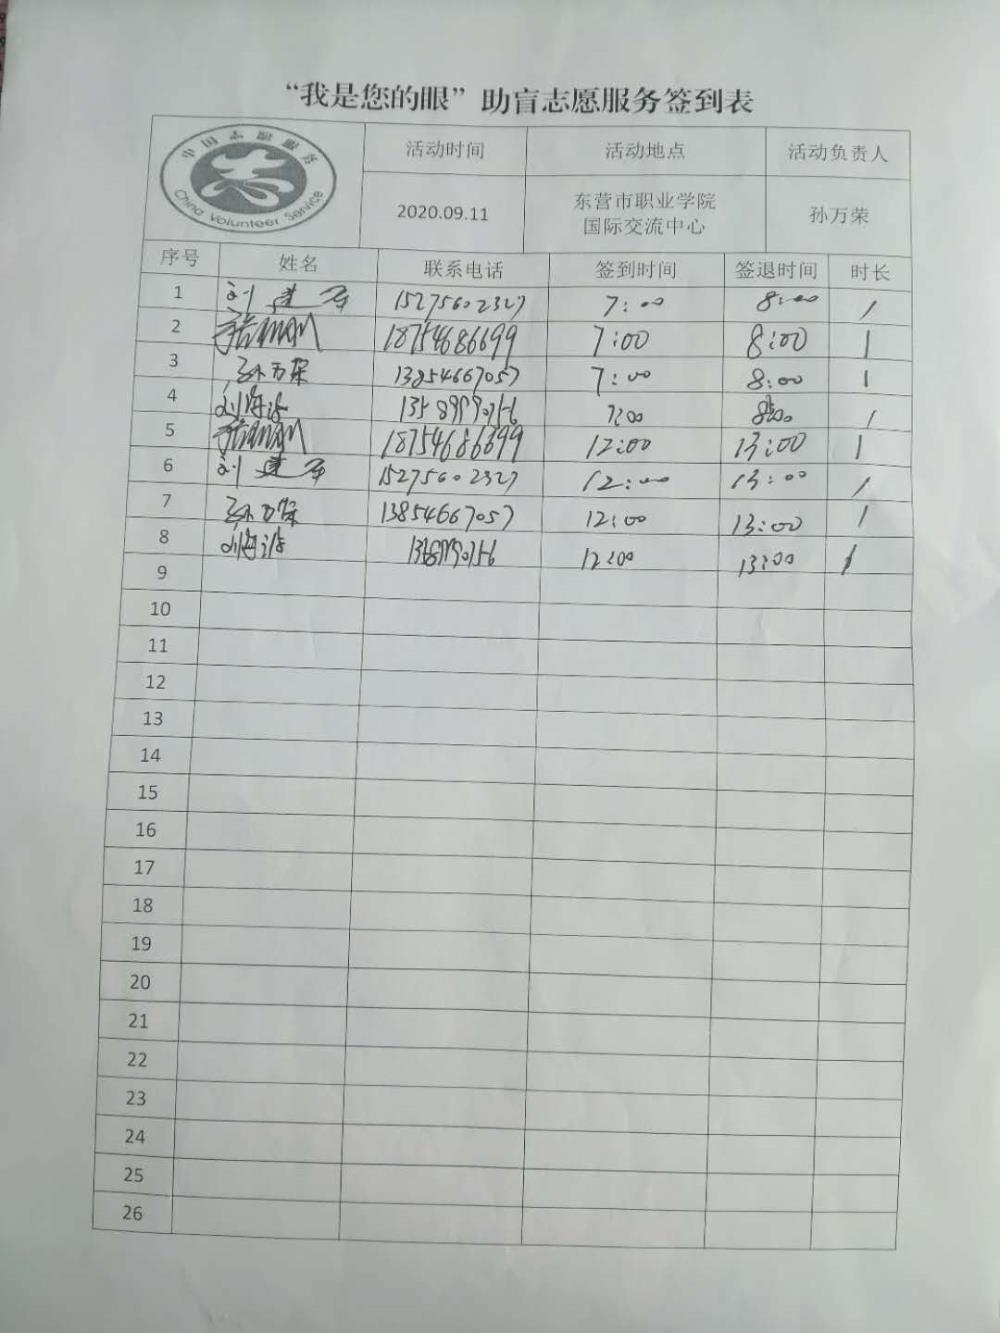 “我是您的眼”助盲志愿服务签到表
中国志愿服务
China Volunteer Service
活动时间 活动地点 活动负责人
2020.09.11 东营市职业学院 国际交流中心 孙万荣
序号 姓名 联系电话 签到时间 签退时间 时长
1 刘 15275602327 7:00 8:00 1
2 18754686699 7:00 8:00 1
3 孙万荣 13854667057 7:00 8:00 1
4 刘海 7:00 8:00 1
5 12:00 13:00 1
6 刘 15275602327 12:00 13:00 1
7 孙万荣 13854667057 12:00 13:00 1
8 刘海 12:00 13:00 1
9
10
11
12
13
14
15
16
17
18
19
20
21
22
23
24
25
26